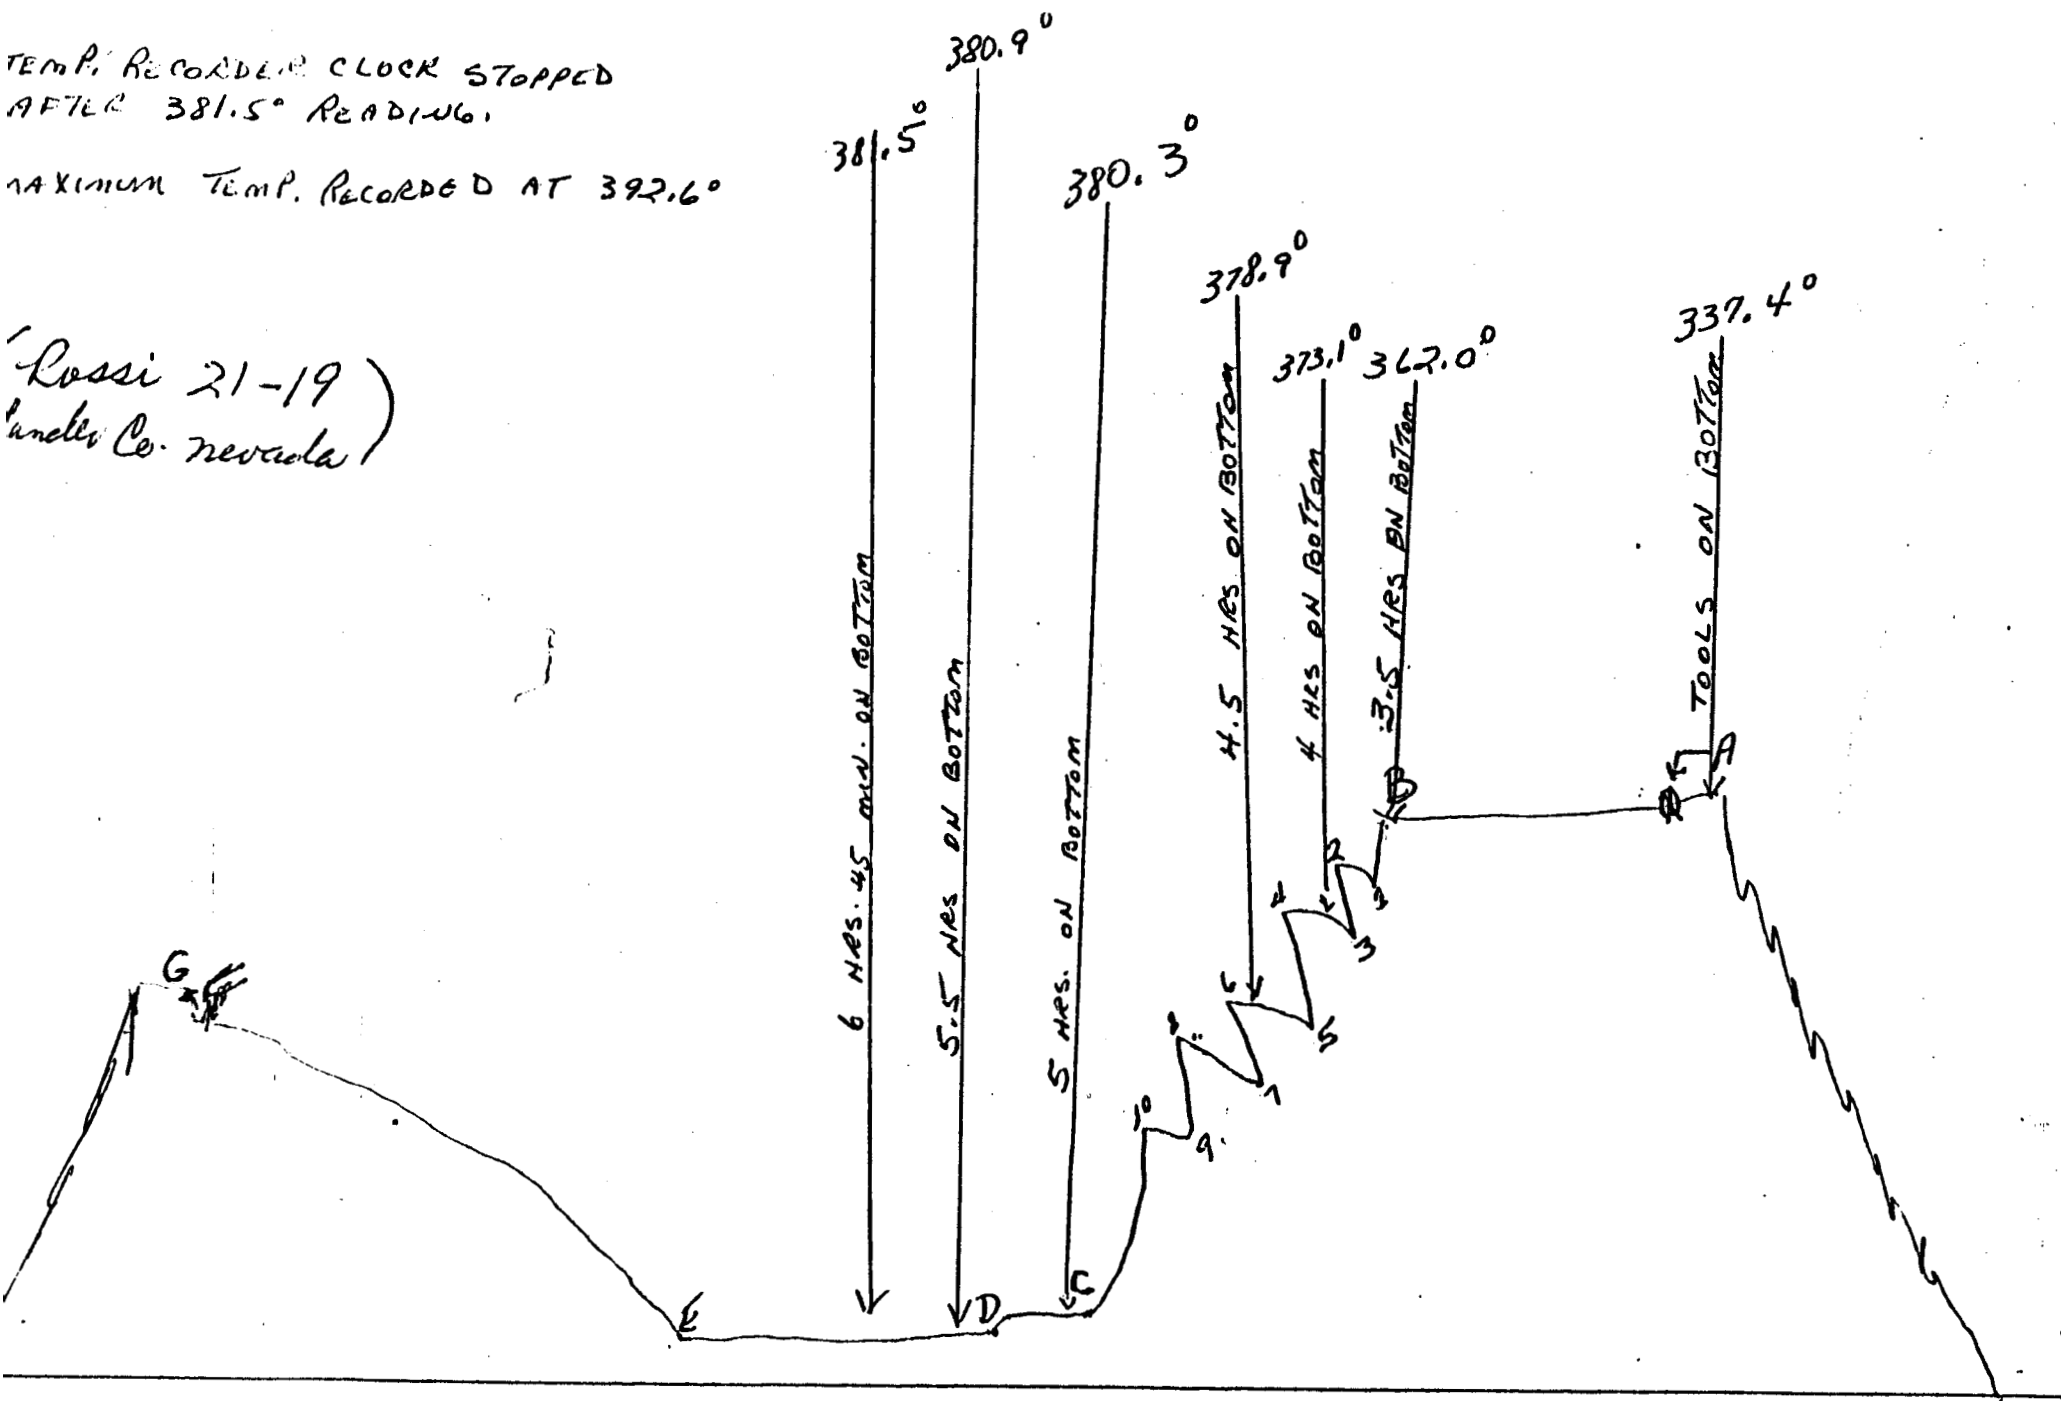 TEMP. RECORDER CLOCK STOPPED
AFTER 381.5° READING.
MAXIMUM TEMP. RECORDED AT 392.6°
(Rossi 21-19)
Lander Co. Nevada
381.5°
380.9°
380.3°
378.9°
373.1°
362.0°
337.4°
6 HRS. 45 MIN. ON BOTTOM
5.5 HRS ON BOTTOM
5 HRS. ON BOTTOM
4.5 HRS ON BOTTOM
4 HRS ON BOTTOM
3.5 HRS ON BOTTOM
TOOLS ON BOTTOM
A
B
1
2
3
4
5
6
7
8
9
10
C
D
E
G